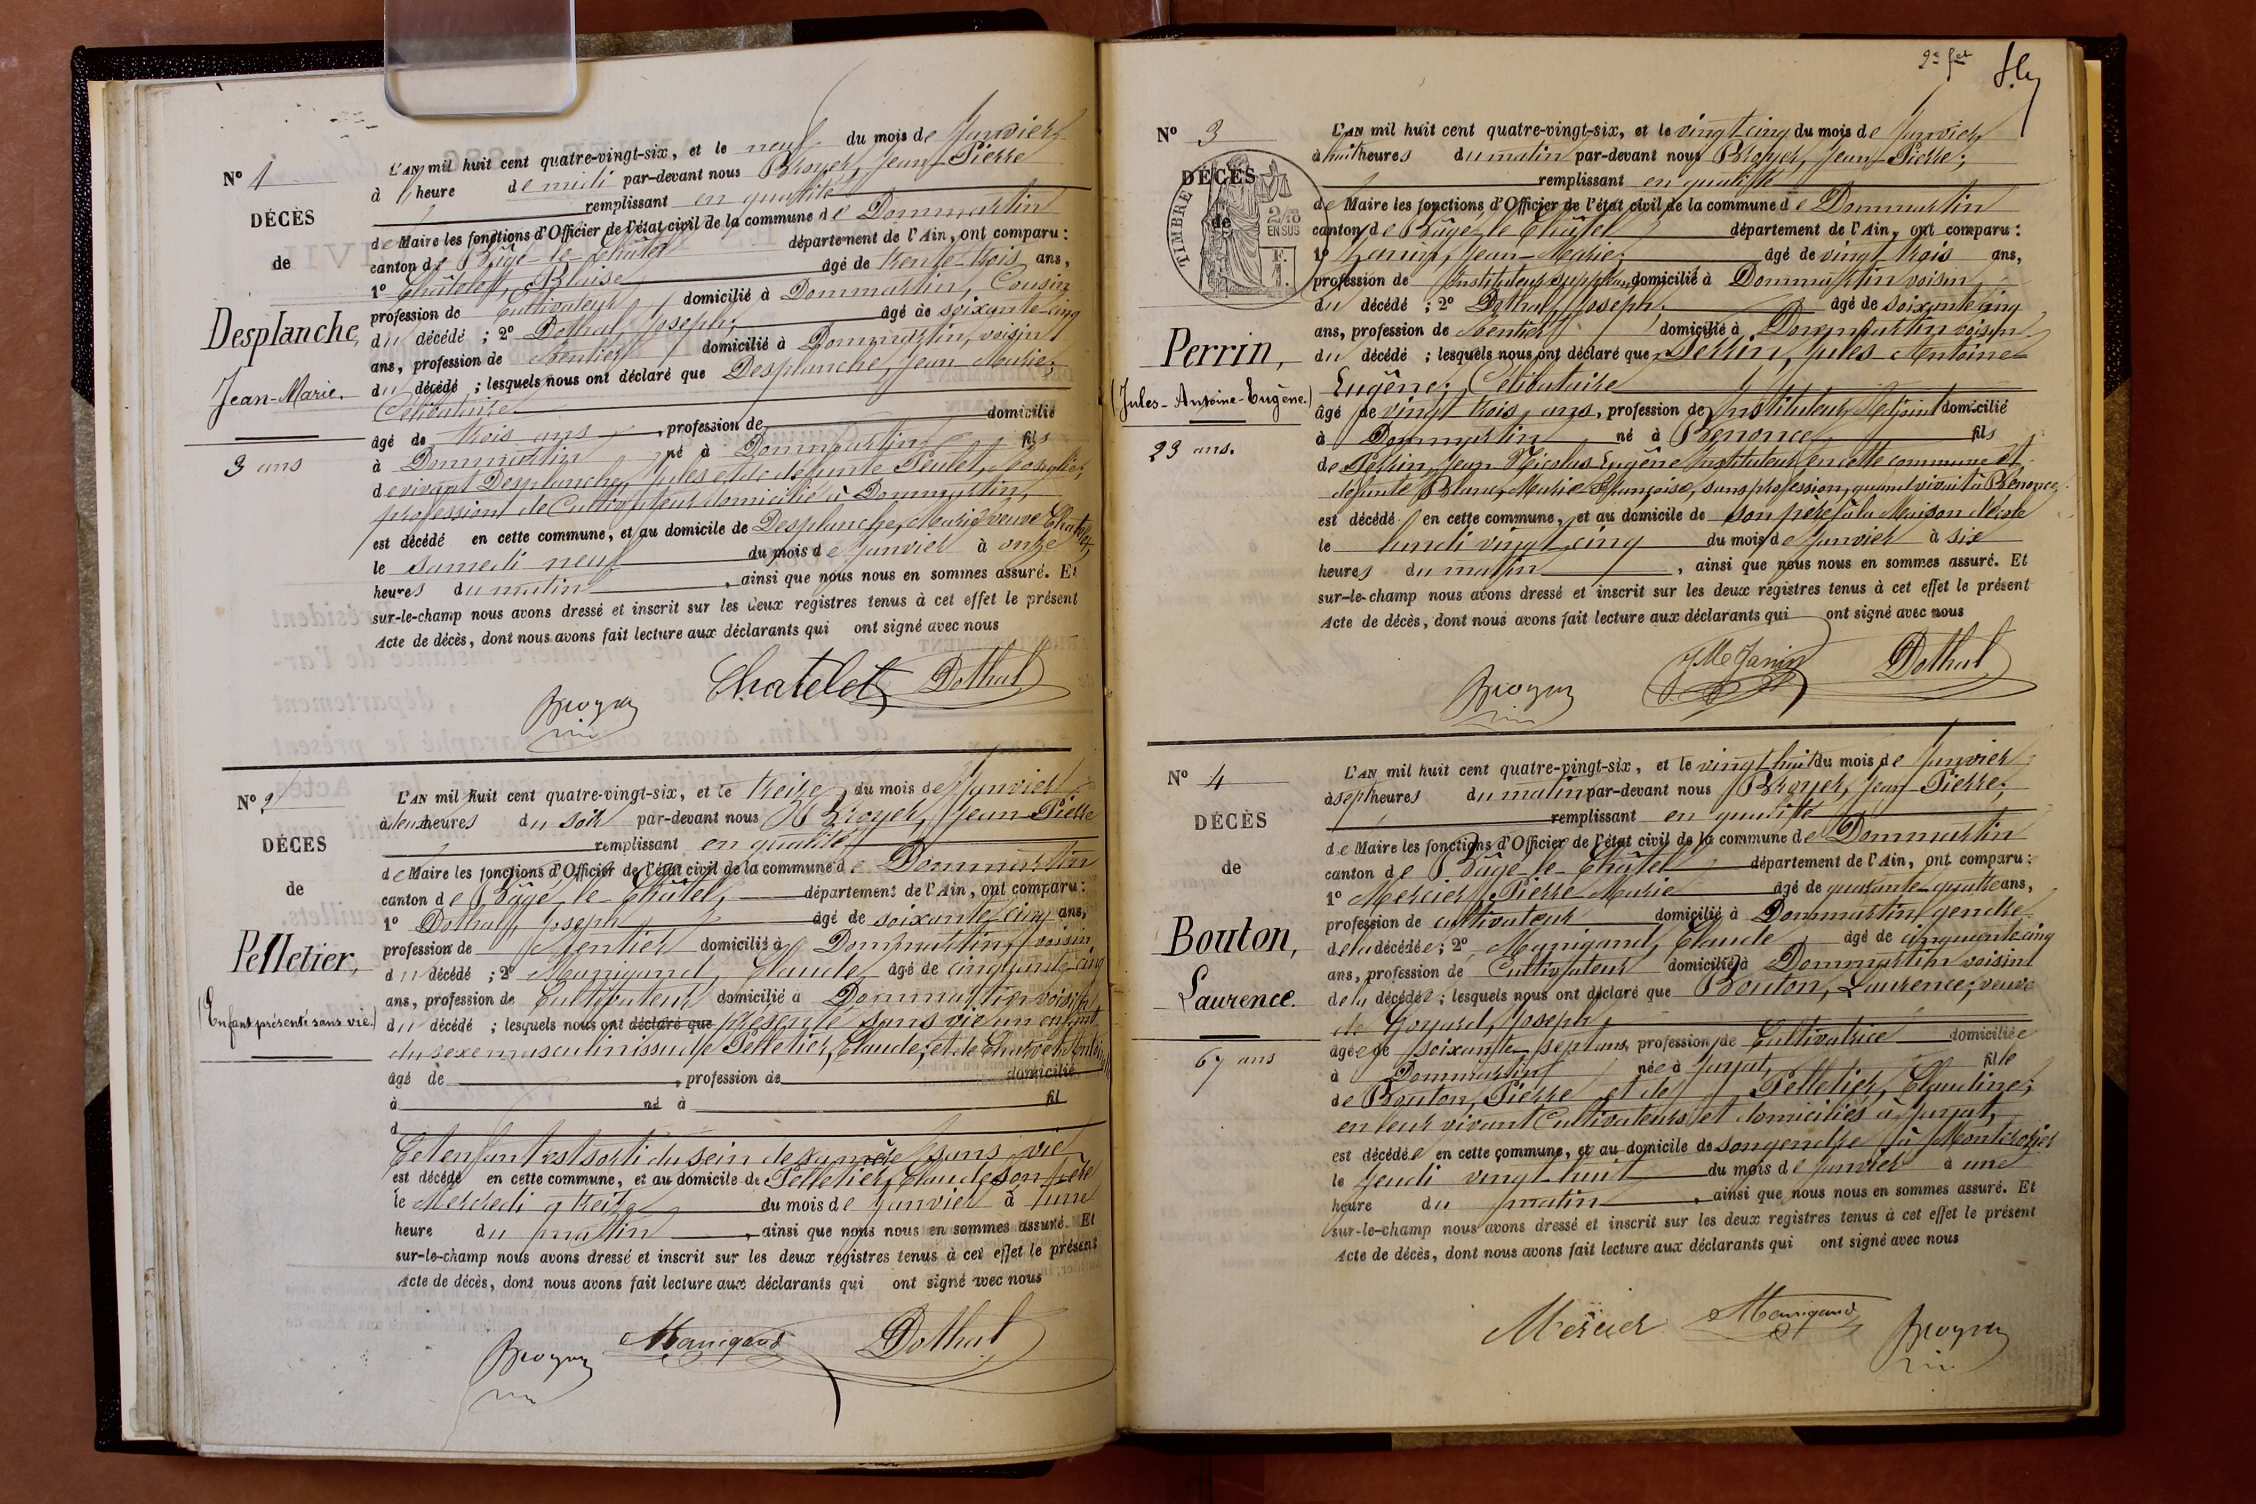 Nº 1
DÉCÈS
de
Desplanche,
Jean-Marie.
3 ans
L'AN mil huit cent quatre-vingt-six, et le neuf du mois de Janvier
à heure de midi par-devant nous Broyer, Jean-Pierre
remplissant en qualité
de Maire les fonctions d'Officier de l'état civil de la commune de Dommartin
canton de Bâgé-le-Châtel département de l'Ain, ont comparu :
1º Châtelet, Blaise âgé de trente-trois ans,
profession de Cultivateur domicilié à Dommartin, Cousin
du décédé ; 2º Dothal, Joseph; âgé de soixante-cinq
ans, profession de Rentier domicilié à Dommartin, voisin
du décédé ; lesquels nous ont déclaré que Desplanche, Jean-Marie;
Célibataire
âgé de trois ans, profession de domicilié
à Dommartin né à Dommartin fils
de vivant Desplanche, Jules et de défunte Peulet,
profession de Cultivateur domicilié à Dommartin,
est décédé en cette commune, et au domicile de Desplanche, Marie veuve Chatelet,
le samedi neuf du mois de Janvier à onze
heures du matin, ainsi que nous nous en sommes assuré. Et
sur-le-champ nous avons dressé et inscrit sur les deux registres tenus à cet effet le présent
Acte de décès, dont nous avons fait lecture aux déclarants qui ont signé avec nous
Broyer Chatelet Dothal
Nº 2
DÉCÈS
de
Pelletier,
(Enfant présenté sans vie.)
L'AN mil huit cent quatre-vingt-six, et le treize du mois de Janvier
à deux heures du soir par-devant nous Broyer, Jean-Pierre
remplissant en qualité
de Maire les fonctions d'Officier de l'état civil de la commune de Dommartin
canton de Bâgé-le-Châtel, département de l'Ain, ont comparu :
1º Dothal, Joseph âgé de soixante-cinq ans,
profession de Rentier domicilié à Dommartin, voisin
du décédé ; 2º Manigand, Claude âgé de cinquante-cinq
ans, profession de Cultivateur domicilié à Dommartin voisin
du décédé ; lesquels nous ont déclaré que présenté sans vie un enfant
du sexe masculin issu de Pelletier, Claude, et de
âgé de , profession de domicilié
à né à fil
d
Cet enfant est sorti du sein de sa mère sans vie
est décédé en cette commune, et au domicile de Pelletier, Claude son père
le Mercredi treize du mois de Janvier à une
heure du matin, ainsi que nous nous en sommes assuré. Et
sur-le-champ nous avons dressé et inscrit sur les deux registres tenus à cet effet le présent
Acte de décès, dont nous avons fait lecture aux déclarants qui ont signé avec nous
Broyer Manigand Dothal
2e fet
Nº 3
TIMBRE
2/10
EN SUS
DÉCÈS
de
Perrin,
(Jules-Antoine-Eugène.)
23 ans.
L'AN mil huit cent quatre-vingt-six, et le vingt-cinq du mois de Janvier
à huit heures du matin par-devant nous Broyer, Jean-Pierre;
remplissant en qualité
de Maire les fonctions d'Officier de l'état civil de la commune de Dommartin
canton de Bâgé-le-Châtel département de l'Ain, ont comparu :
1º Janin, Jean-Marie; âgé de vingt-trois ans,
profession de Instituteur suppléant domicilié à Dommartin voisin
du décédé ; 2º Dothal, Joseph, âgé de soixante-cinq
ans, profession de Rentier domicilié à Dommartin voisin
du décédé ; lesquels nous ont déclaré que Perrin, Jules Antoine
Eugène; Célibataire
âgé de vingt trois ans, profession de Instituteur Adjoint domicilié
à Dommartin né à Benonce fils
de Perrin, Jean Nicolas Eugène Instituteur en cette commune et
défunte Blanc, Marie Françoise, sans profession, quand vivait à Benonce,
est décédé en cette commune, et au domicile de son père à la Maison d'école
le lundi vingt-cinq du mois de Janvier à six
heures du matin, ainsi que nous nous en sommes assuré. Et
sur-le-champ nous avons dressé et inscrit sur les deux registres tenus à cet effet le présent
Acte de décès, dont nous avons fait lecture aux déclarants qui ont signé avec nous
Broyer JM Janin Dothal
Nº 4
DÉCÈS
de
Bouton,
Laurence.
67 ans
L'AN mil huit cent quatre-vingt-six, et le vingt-huit du mois de Janvier
à sept heures du matin par-devant nous Broyer, Jean-Pierre;
remplissant en qualité
de Maire les fonctions d'Officier de l'état civil de la commune de Dommartin
canton de Bâgé-le-Châtel département de l'Ain, ont comparu :
1º Mercier, Pierre Marie âgé de quarante-quatre ans,
profession de cultivateur domicilié à Dommartin, gendre
de la décédée ; 2º Manigand, Claude âgé de cinquante-cinq
ans, profession de Cultivateur domicilié à Dommartin voisin
de la décédée ; lesquels nous ont déclaré que Bouton, Laurence; veuve
de Goyard, Joseph;
âgée de soixante-sept ans, profession de Cultivatrice domiciliée
à Dommartin née à Jayat, fille
de Bouton, Pierre et de Pelletier, Claudine;
en leur vivant Cultivateurs et domiciliés à Jayat,
est décédée en cette commune, et au domicile de son gendre à Montcrozier
le Jeudi vingt-huit du mois de Janvier à une
heure du matin, ainsi que nous nous en sommes assuré. Et
sur-le-champ nous avons dressé et inscrit sur les deux registres tenus à cet effet le présent
Acte de décès, dont nous avons fait lecture aux déclarants qui ont signé avec nous
Mercier Manigand Broyer